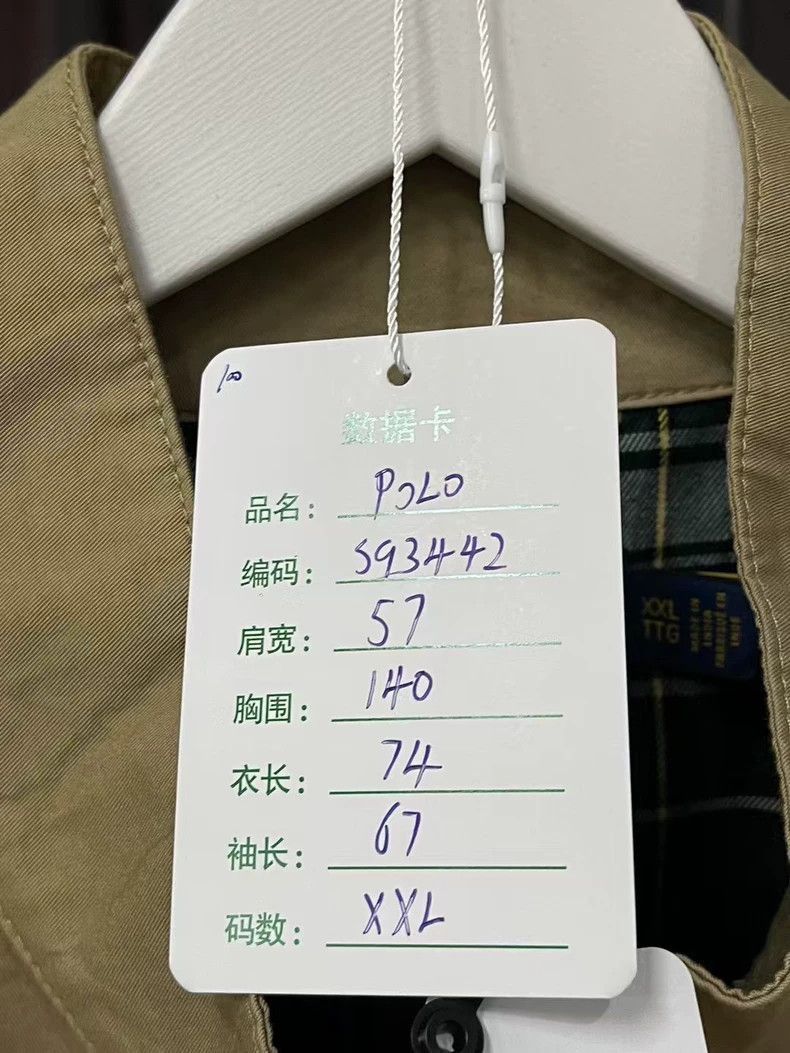 100
数据卡
品名： POLO
编码： S93442
肩宽： 57
胸围： 140
衣长： 74
袖长： 67
码数： XXL
XXL
TTG
MADE IN
INDIA
FABRIQUÉ EN
INDE